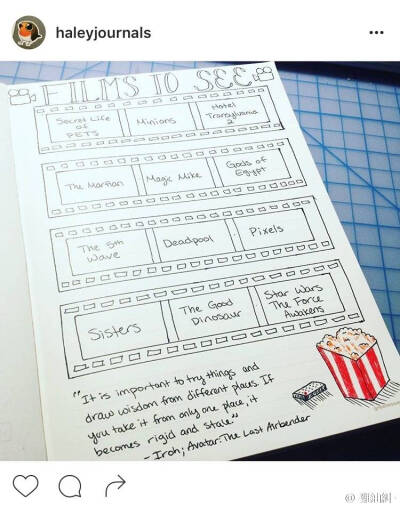 haleyjournals
FILMS TO SEE
Secret Life
of
PETS
Minions
Hotel
Transylvania
2
The Martian
Magic Mike
Gods of
Egypt
The 5th
Wave
Deadpool
Pixels
Sisters
The Good
Dinosaur
Star Wars
The Force
Awakens
"It is important to try things and
draw wisdom from different places. If
you take it from only one place, it
becomes rigid and stale."
- Iroh; Avatar: The Last Airbender